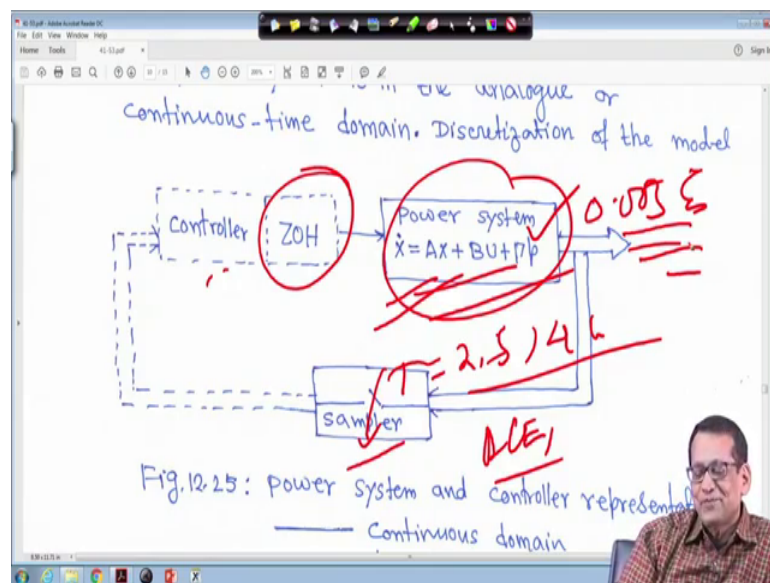 41-53.pdf - Adobe Acrobat Reader DC
File Edit View Window Help
Home Tools 41-53.pdf × Sign In
in the analogue or
continuous-time domain. Discretization of the model
Controller
ZOH
Power system
ẋ = Ax + BU + Γp
0.005
T = 2.5/4
sampler
ACE,
Fig.12.25: power system and controller representat
continuous domain